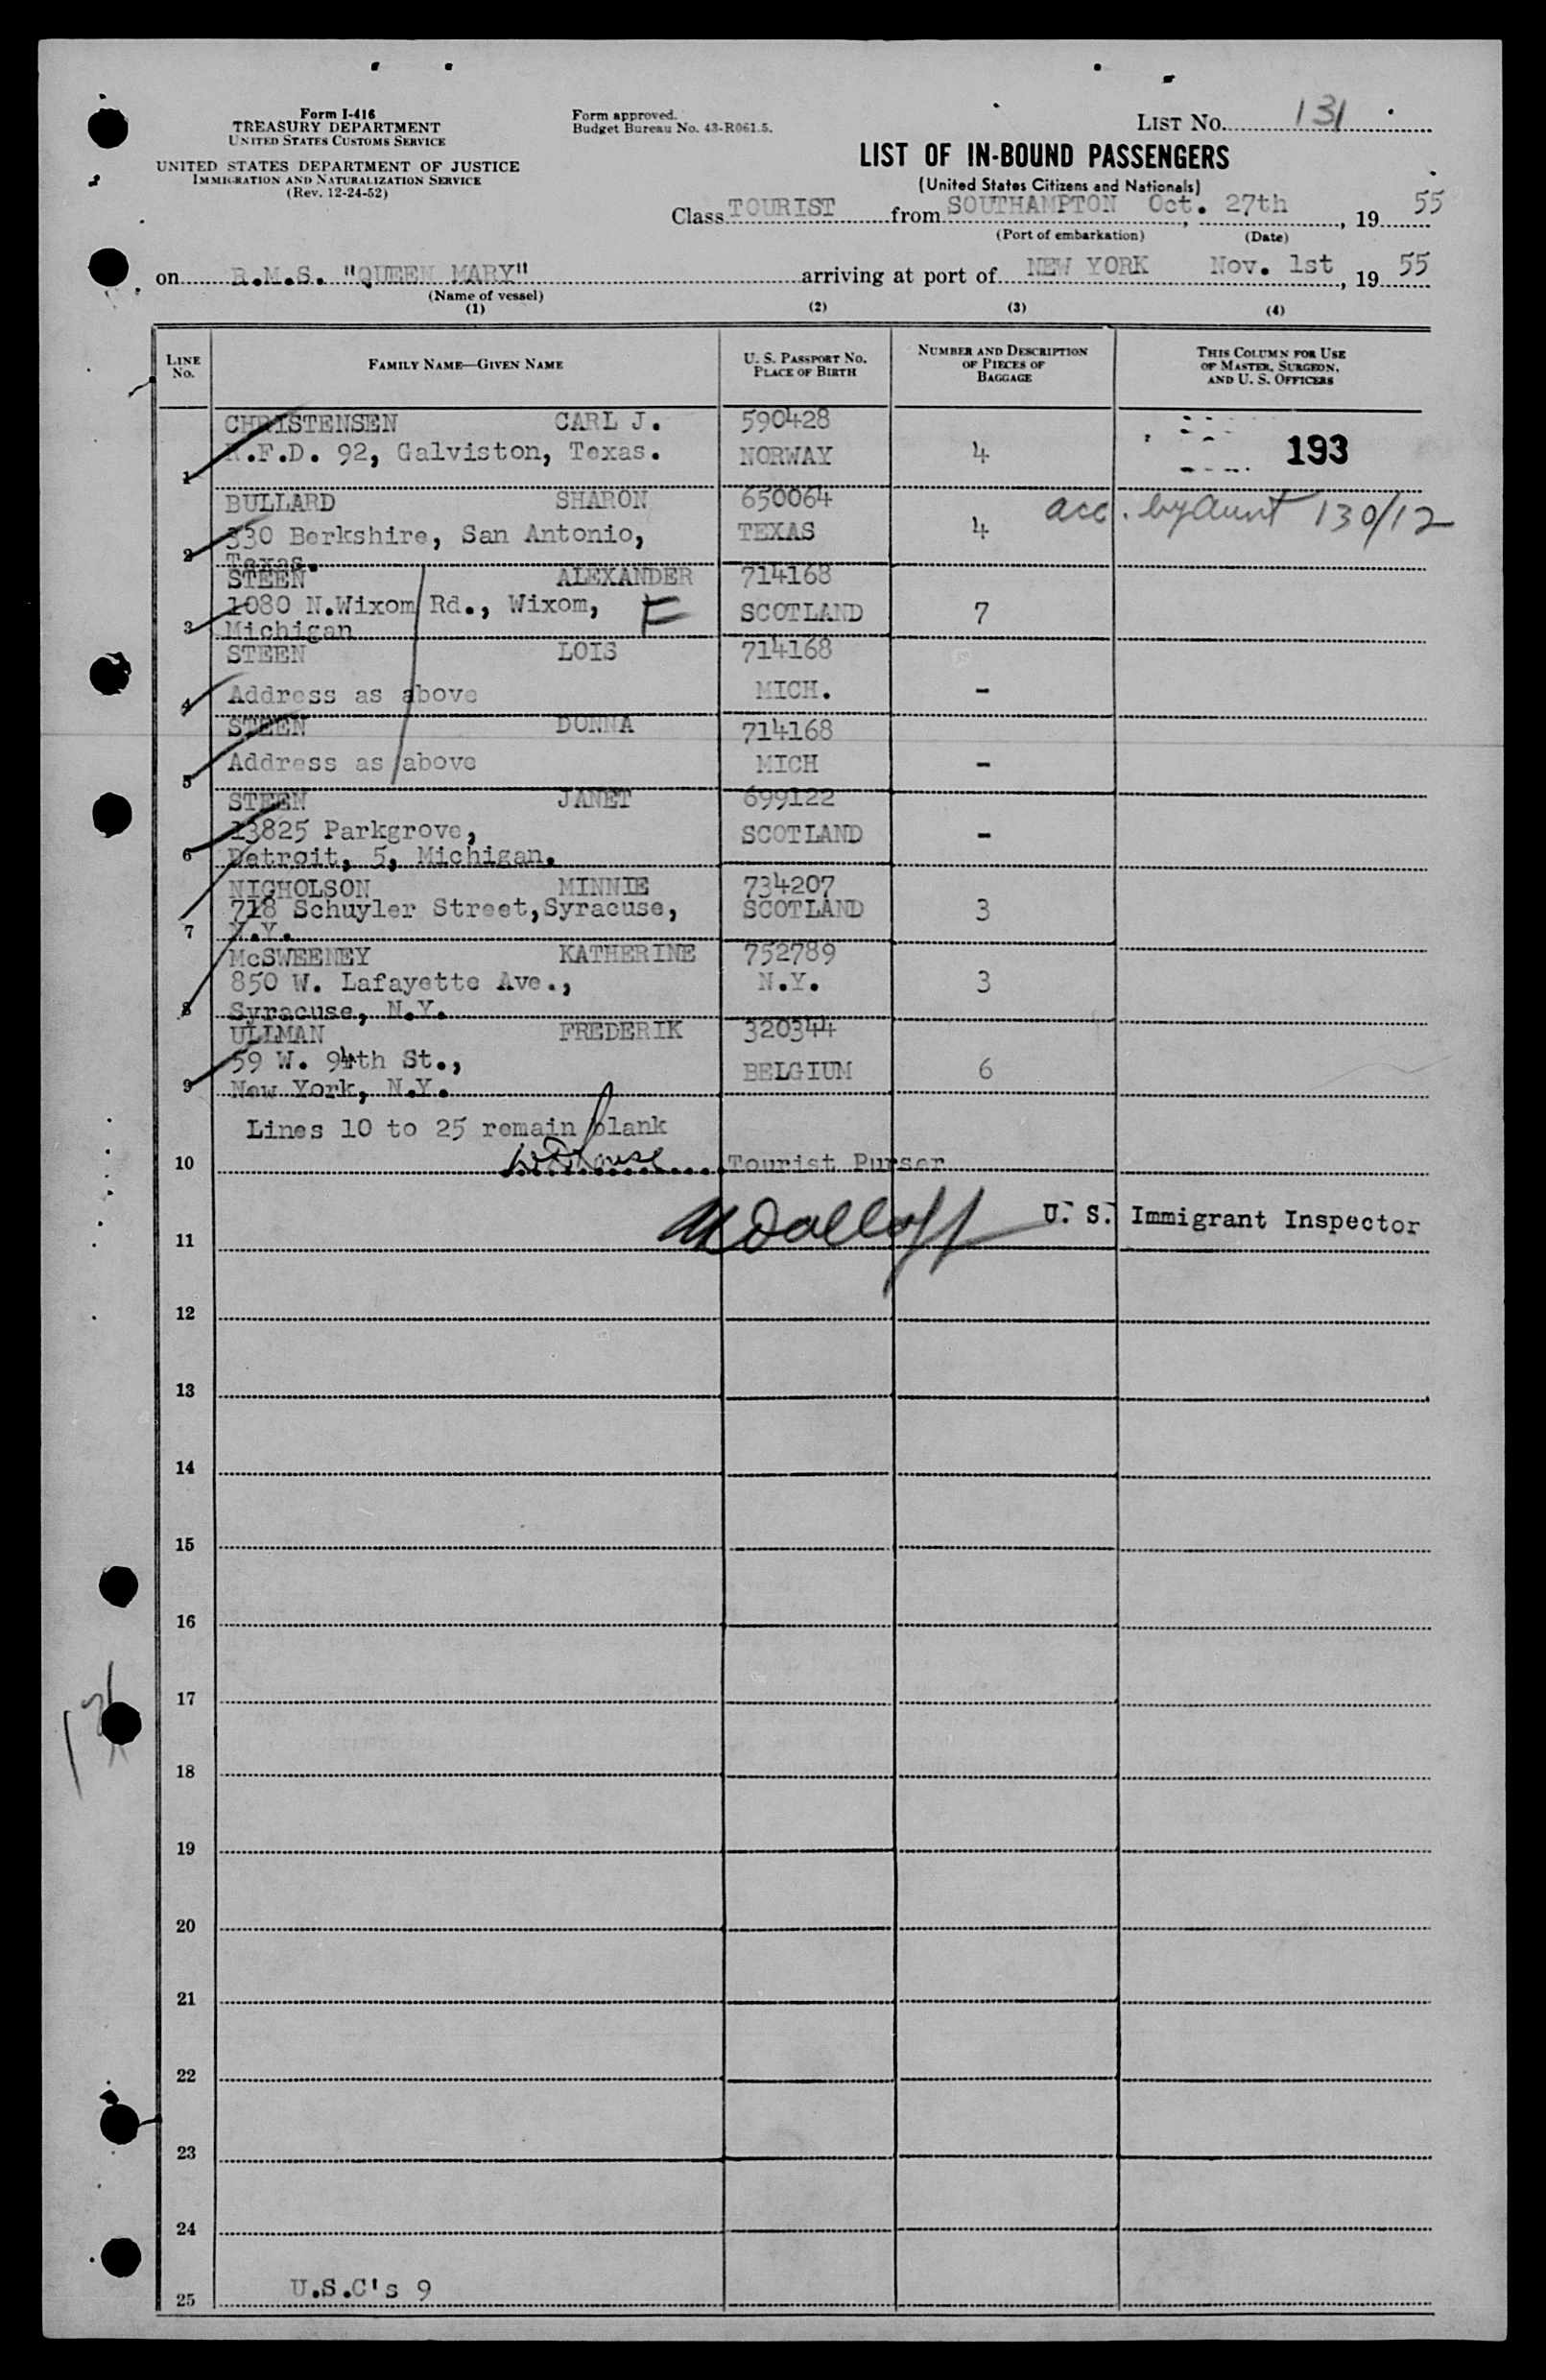 Form I-416
TREASURY DEPARTMENT
UNITED STATES CUSTOMS SERVICE
UNITED STATES DEPARTMENT OF JUSTICE
IMMIGRATION AND NATURALIZATION SERVICE
(Rev. 12-24-52)
Form approved.
Budget Bureau No. 43-R061.5.
LIST NO. 131
LIST OF IN-BOUND PASSENGERS
(United States Citizens and Nationals)
Class TOURIST from SOUTHAMPTON Oct. 27th, 19 55
(Port of embarkation) (Date)
on R.M.S. "QUEEN MARY" arriving at port of NEW YORK Nov. 1st, 19 55
(Name of vessel)
(1) (2) (3) (4)
LINE No. FAMILY NAME—GIVEN NAME U. S. PASSPORT NO. PLACE OF BIRTH NUMBER AND DESCRIPTION OF PIECES OF BAGGAGE THIS COLUMN FOR USE OF MASTER, SURGEON, AND U. S. OFFICERS
CHRISTENSEN CARL J. 590428
1 R.F.D. 92, Galviston, Texas. NORWAY 4 193
BULLARD SHARON 650064
2 330 Berkshire, San Antonio, TEXAS 4 acc. by aunt 130/12
Texas.
STEEN ALEXANDER 714168
3 1080 N.Wixom Rd., Wixom, F SCOTLAND 7
Michigan
STEEN LOIS 714168
4 Address as above MICH. -
STEEN DONNA 714168
5 Address as above MICH -
STEEN JANET 699122
13825 Parkgrove, SCOTLAND -
6 Detroit, 5, Michigan.
NICHOLSON MINNIE 734207
718 Schuyler Street,Syracuse, SCOTLAND 3
7 N.Y.
McSWEENEY KATHERINE 752789
850 W. Lafayette Ave., N.Y. 3
8 Syracuse, N.Y.
ULLMAN FREDERIK 320344
59 W. 94th St., BELGIUM 6
9 New York, N.Y.
Lines 10 to 25 remain blank
10 Tourist Purser
U. S. Immigrant Inspector
11
12
13
14
15
16
17
18
19
20
21
22
23
24
25 U.S.C's 9